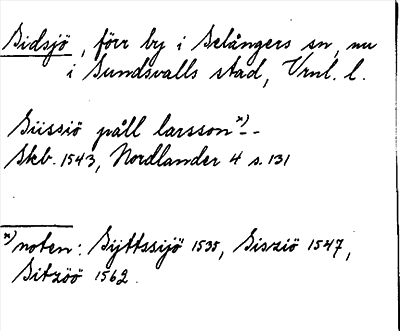 Sidsjö, förr by i Selångers sn, nu
i Sundsvalls stad, Vrnl. l.
Siissiö påll larsson *) - -
Skb. 1543, Nordlander 4 s. 131
*) noten: Sijttssijö 1535, Sisziö 1547,
Sitzöö 1562.